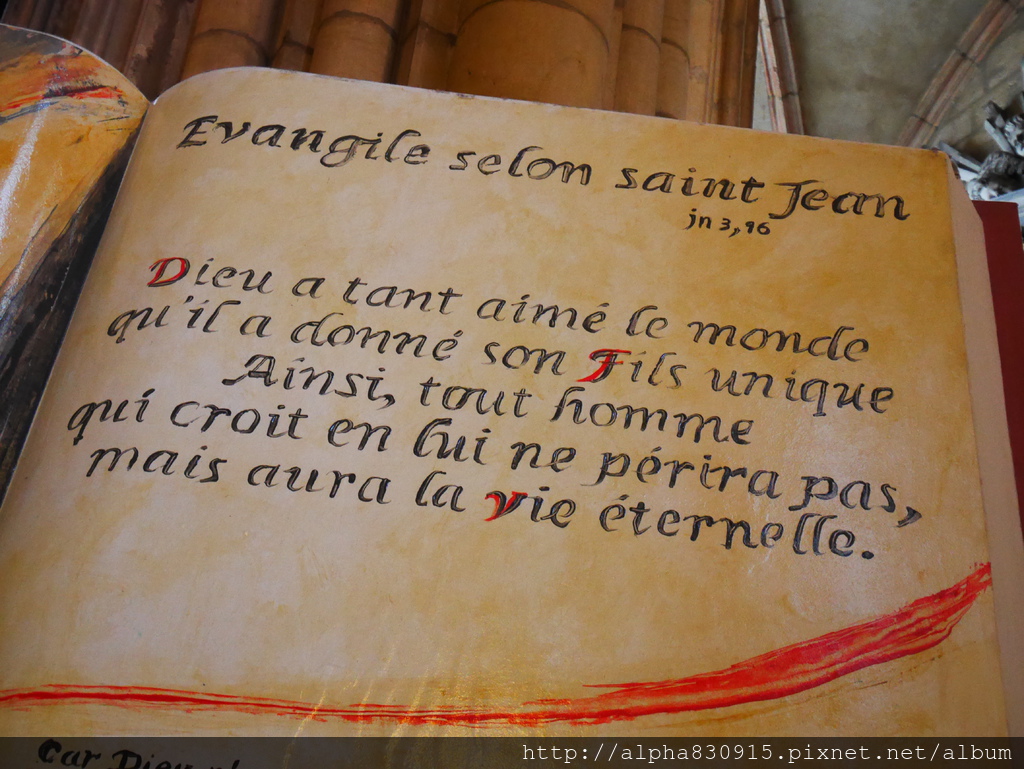 Evangile selon saint Jean
jn 3,16
Dieu a tant aimé le monde
qu'il a donné son Fils unique
Ainsi, tout homme
qui croit en lui ne périra pas,
mais aura la vie éternelle.
Car Dieu
http://alpha830915.pixnet.net/album